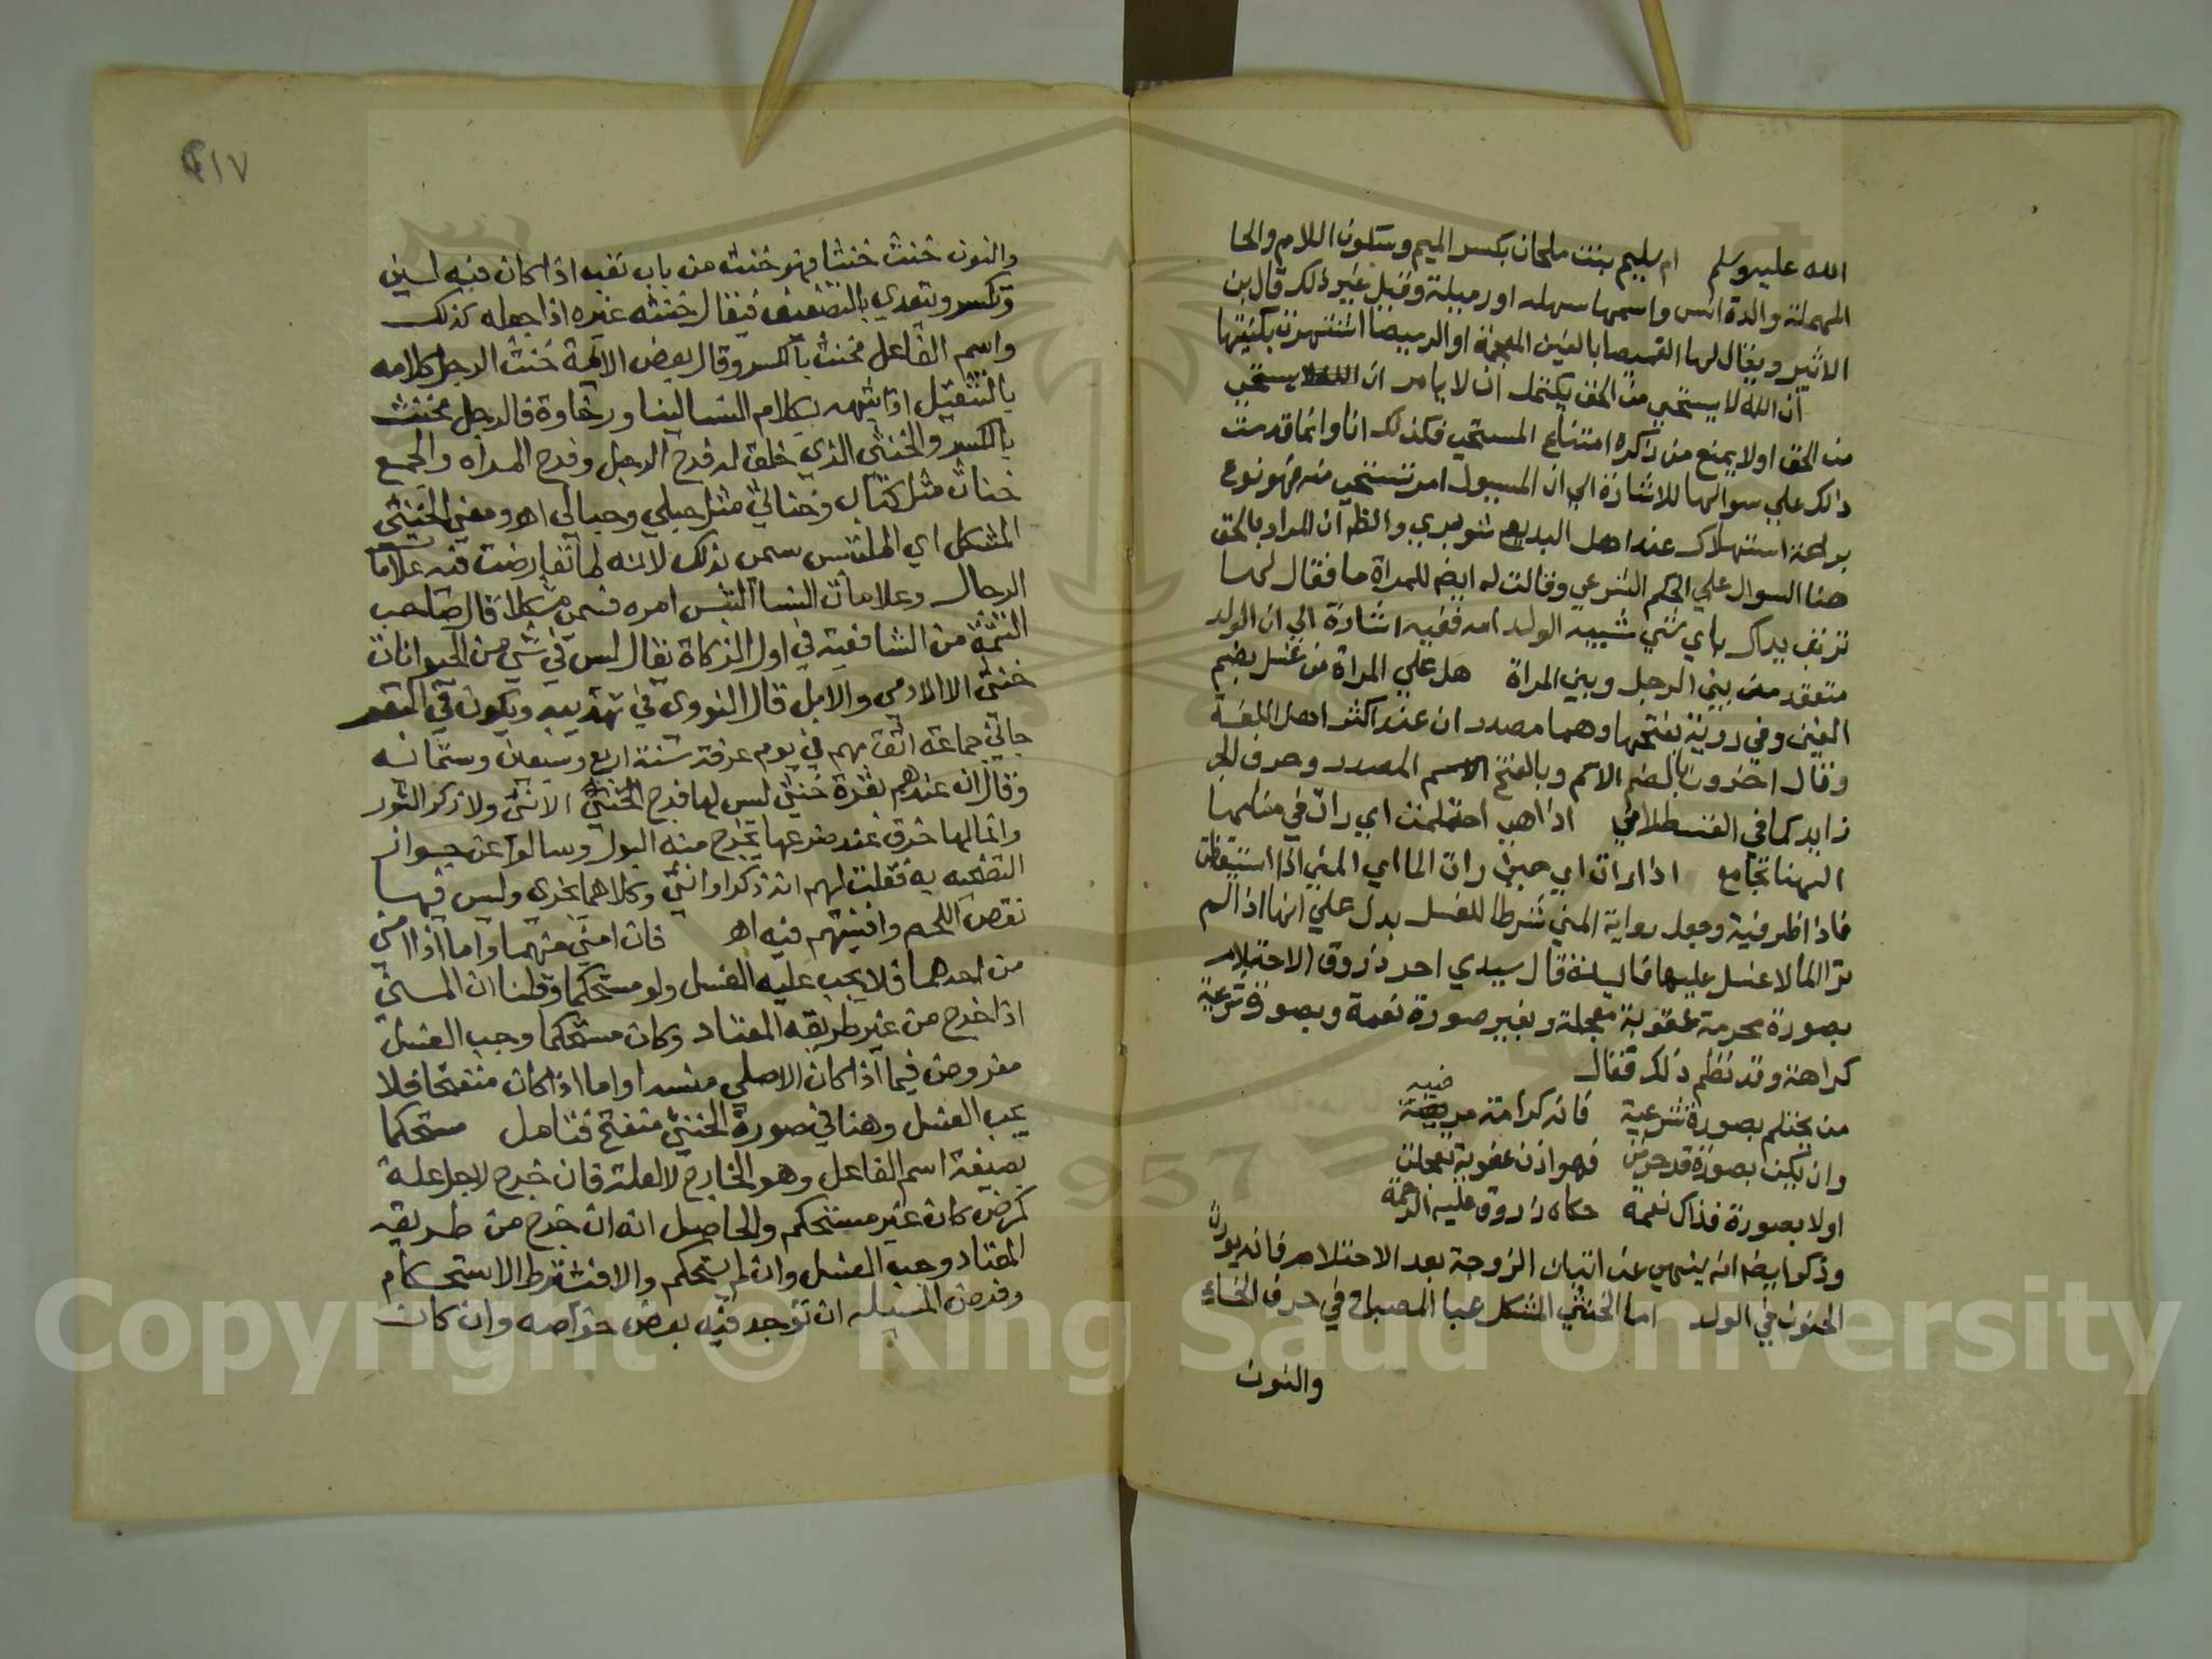 الله عليه وسلم ام سليم بنت ملحان بكسر الميم وسكون اللام والحا
المهملة والدة انس واسمها سهله او رميلة وقيل غير ذلك قال بن
الاثير ويقال لها الغميصا بالغين المعجمة او الرميصا اشتهرت بكنيتها
ان الله لا يستحي من الحق يحتمل ان لا يامر ان الله لا يستحي
من الحق اولا يمنع من ذكره امتناع المستحي فكذلك انا وانما قدمت
ذلك علي سوالها للاشارة الي ان المسيول امر تستحي منه فهو نوع
براعة استهلاك عند اهل البديع شوبيري والظه ان المراد بالحق
هنا السوال علي الحكم الشرعي وقالت له ايضه للمراة ما فقال لها
تربت يداك باي شي شبيه الولد امه ففيه اشارة الي ان الولد
متعقد من بين الرجل وبين المراة هل علي المراة من غسل بضم
الغين وفي رواية بفتحها وهما مصدران عند اكثر اهل اللغة
وقال اخرون بالضم الاسم وبالفتح المصدر وحرف الجر
زايد كما في القسطلاني اذا هي احتلمت اي رات في منامها
انها تجامع اذا رات اي حين رات الما اي المني اذا استيقظت
فاذا ظرفية وجعل رواية المني شرطا للغسل يدل علي انها اذا لم
تر الما لا غسل عليها فايدة قال سيدي احمد زروق الاحتلام
بصورة محرمة عقوبة معجلة وبغير صورة نعمة وبصورة شرعية
كراهة وقد نظم ذلك فقال
من يحتلم بصورة شرعية فانه كرامة مرضية
وان يكن بصورة قد حرمت فهو اذن عقوبة تعجلت
اولا بصورة فذاك نعمة حكاه زروق عليه الرحمة
وذكر ايضه انه ينهي عن اتيان الزوجة بعد الاحتلام فانه يورث
الجنون في الولد اما الخنثي المشكل عبا المصباح في حرف الخاء
والنون
٢١٧
والنون خنث خنثا فهو خنث من باب تعب اذا كان فيه لين
وتكسر ويتعدي بالتضعيف فيقال خنثه غيره اذا جعله كذلك
واسم الفاعل مخنث بالكسر وقال بعض الايمة خنث الرجل كلامه
بالتثقيل اذا شبهه بكلام النسا لينا ورخاوة فالرجل مخنث
بالكسر والخنثي الذي خلق له فرج الرجل وفرج المراه والجمع
خناث مثل كتاب وخناثي مثل حبلي وحبالي اهـ ومعني الخنثي
المشكل اي الملتبس سمي بذلك لانه لما تعارضت فيه علامات
الرجال وعلامات النسا التبس امره فسمي مشكلا قال صاحب
التتمة من الشافعية في اول الزكاة يقال ليس في شي من الحيوانات
خنثي الا الادمي والابل قال النووي في تهذيبه ويكون في البقر
جاني جماعة اثق بهم في يوم عرفة سنة اربع وسبعين وستمائه
وقال ان عندهم بقرة خنثي ليس لها فرج الانثي ولا ذكر الثور
وانما لها خرق عند ضرعها يخرج منه البول وسالوا عن جواز
التضحيه به فقلت لهم انه ذكرا وانثي وكلاهما يجزي وليس فيها
نقص اللحم وافتيتهم فيه اهـ فان امني منهما واما اذا امني
من احدهما فلا يجب عليه الغسل ولو مستحكما وقلنا ان المني
اذا خرج من غير طريقه المعتاد وكان مستحكما وجب الغسل
مفروض فيما اذا كان الاصلي منسدا واما اذا كان منفتحا فلا
يجب الغسل وهنا في صورة الخنثي منفتح فتامل مستحكما
بصيغة اسم الفاعل وهو الخارج لا لعلة فان خرج لاجل علة
كمرض كان غير مستحكم والحاصل انه ان خرج من طريقه
المعتاد وجب الغسل وان لم يستحكم والا فشرط الاستحكام
وفرض المسيله ان توجد فيه بعض خواصه وان كان
Copyright © King Saud University
1957